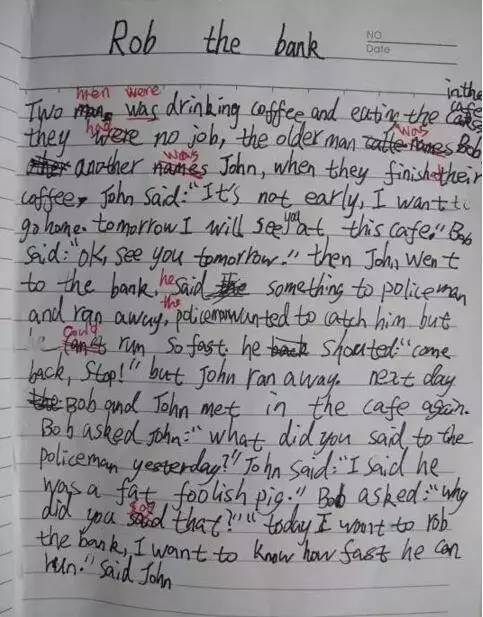 NO
Date
Rob the bank
in the
men were cafe
Two man was drinking coffee and eating the cakes
had was
they were no job, the older man names Bob
was
another names John, when they finished their
coffee, John said: "It's not early, I want to
you
go home. tomorrow I will see at this cafe." Bob
said: "ok, see you tomorrow." then John went
he
to the bank, said the something to policeman
the
and ran away, policeman wanted to catch him but
could
he can't run so fast. he back shouted: "come
back, stop!" but John ran away. next day
the Bob and John met in the cafe again.
Bob asked John: "what did you said to the
policeman yesterday?" John said: "I said he
was a fat foolish pig." Bob asked: "why
say
did you said that?" "today I want to rob
the bank, I want to know how fast he can
run." said John